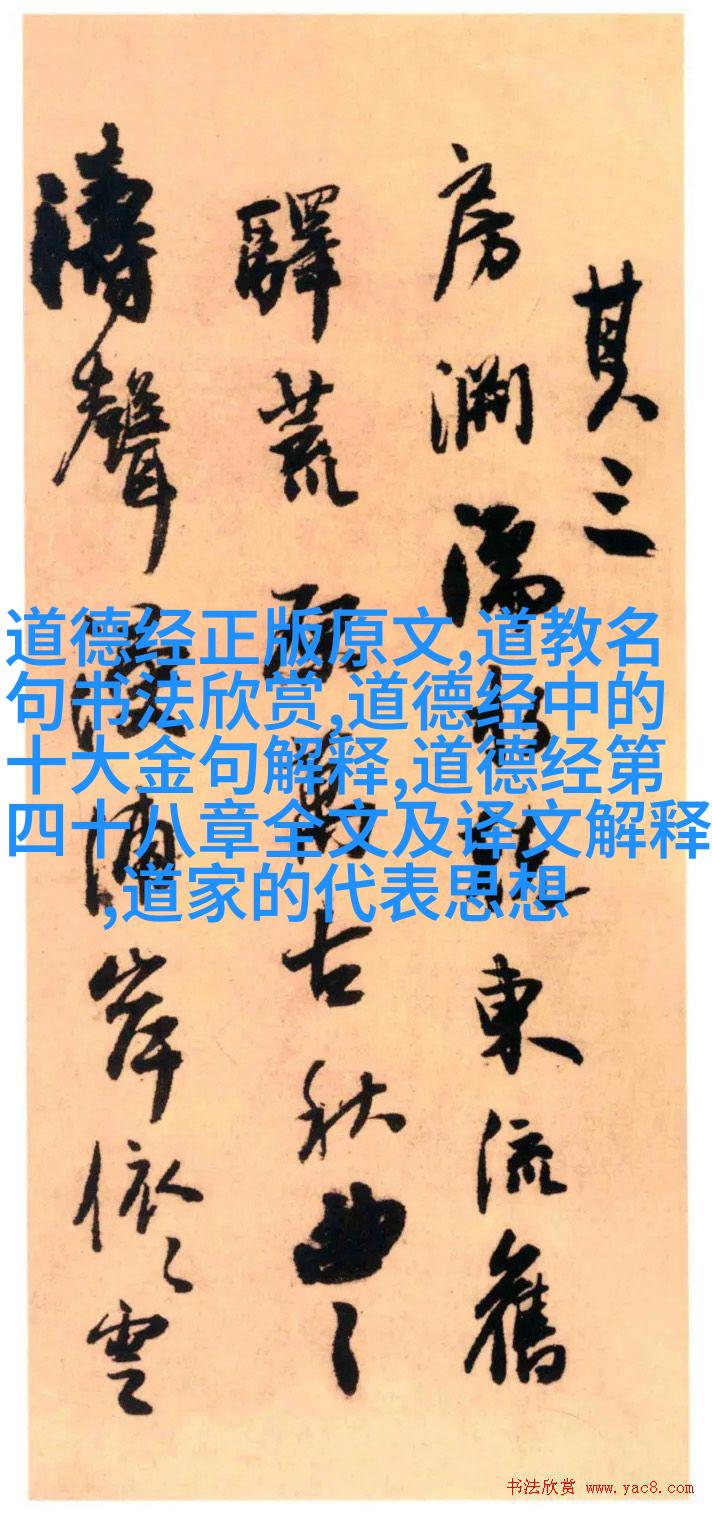 其三
房 東流舊
驛荒 古秋曲〻
濤聲 岸依〻雲
道德经正版原文,道教名
句书法欣赏,道德经中的
十大金句解释,道德经第
四十八章全文及译文解释
,道家的代表思想
书法欣赏 www.yac8.com